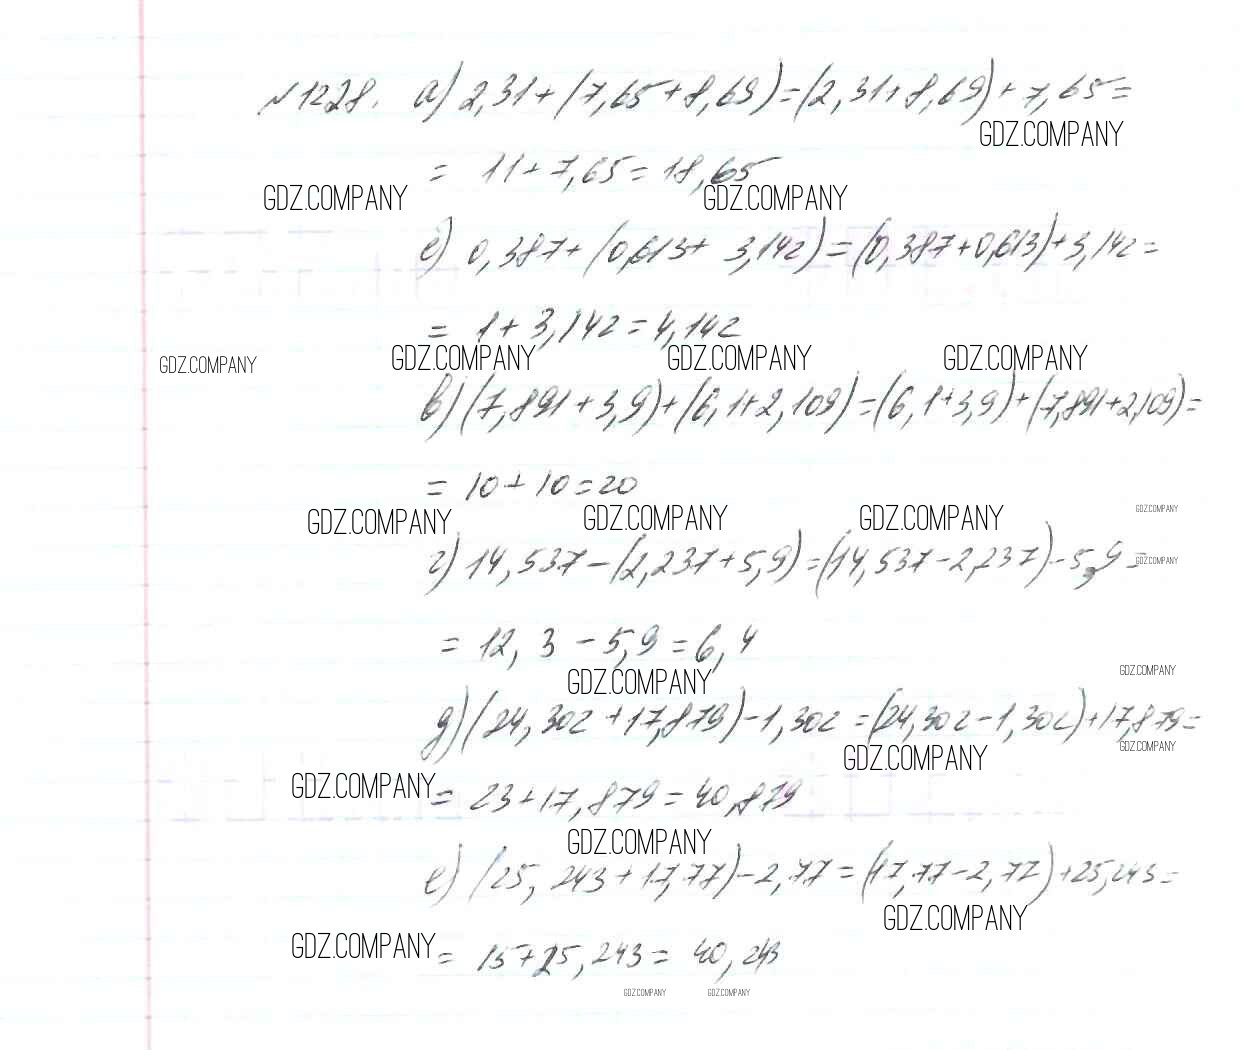 №1228. а) 2,31+(7,65+8,69)=(2,31+8,69)+7,65=
GDZ.COMPANY
= 11+7,65=18,65
GDZ.COMPANY GDZ.COMPANY
б) 0,387+(0,613+3,142)=(0,387+0,613)+3,142=
= 1+3,142=4,142
GDZ.COMPANY GDZ.COMPANY GDZ.COMPANY GDZ.COMPANY
в) (7,891+3,9)+(6,1+2,109)=(6,1+3,9)+(7,891+2,109)=
= 10+10=20
GDZ.COMPANY GDZ.COMPANY GDZ.COMPANY GDZ.COMPANY
г) 14,537-(2,237+5,9)=(14,537-2,237)-5,9=
GDZ.COMPANY
= 12,3-5,9=6,4
GDZ.COMPANY GDZ.COMPANY
д) (24,302+17,879)-1,302=(24,302-1,302)+17,879=
GDZ.COMPANY GDZ.COMPANY
GDZ.COMPANY = 23+17,879=40,879
GDZ.COMPANY
е) (25,243+17,77)-2,77=(17,77-2,77)+25,243=
GDZ.COMPANY
GDZ.COMPANY = 15+25,243=40,243
GDZ.COMPANY GDZ.COMPANY